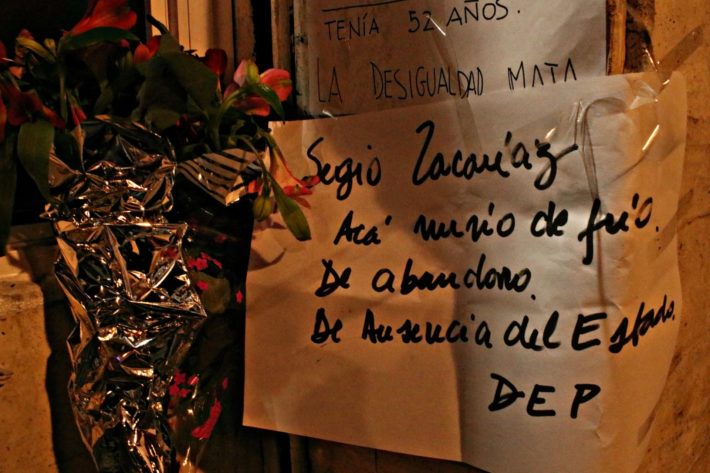 TENÍA 52 AÑOS.
LA DESIGUALDAD MATA
Segio Zacaríaz
Acá murio de frío.
De abandono.
De Ausencia del Estado.
DEP